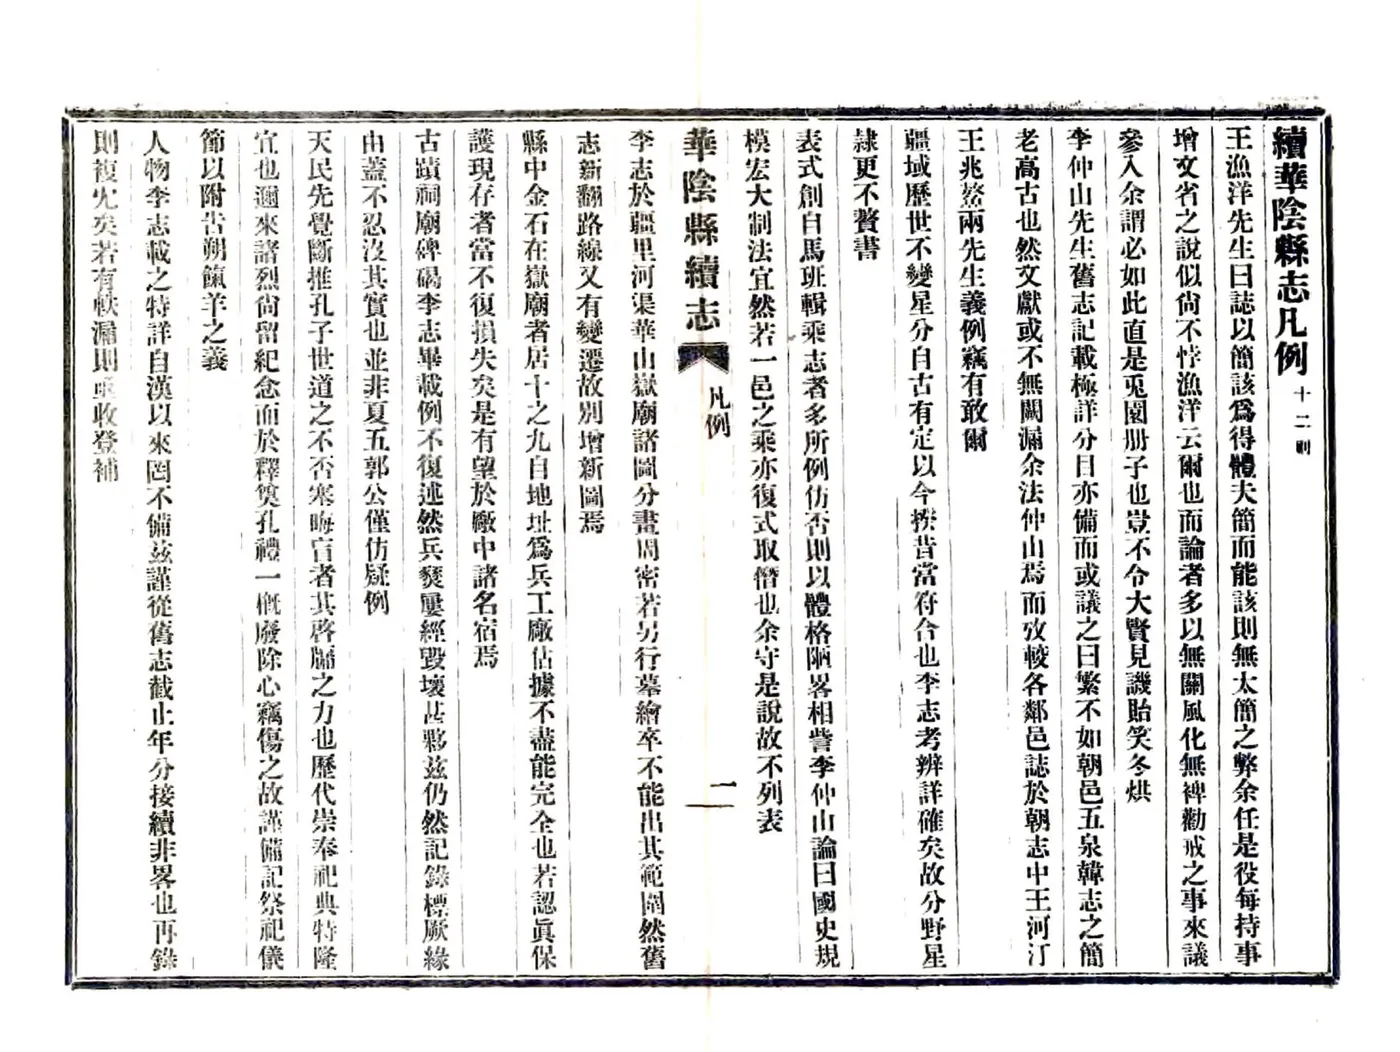 續華陰縣志凡例 十二則
王漁洋先生曰誌以簡該爲得體夫簡而能該則無太簡之弊余任是役每持事
增文省之說似尙不悖漁洋云爾也而論者多以無關風化無裨勸戒之事來議
參入余謂必如此直是兎園册子也豈不令大賢見譏貽笑冬烘
李仲山先生舊志記載極詳分目亦備而或議之曰繁不如朝邑五泉韓志之簡
老高古也然文獻或不無闕漏余法仲山焉而攷較各鄰邑誌於朝志中王河汀
王兆鰲兩先生義例竊有敢爾
疆域歷世不變星分自古有定以今揆昔當符合也李志考辨詳確矣故分野星
隷更不贅書
表式創自馬班輯乘志者多所例仿否則以體格陋畧相訾李仲山論曰國史規
模宏大制法宜然若一邑之乘亦復式取僭也余守是說故不列表
華陰縣續志 凡例 一
李志於疆里河渠華山嶽廟諸圖分畫周密若另行摹繪卒不能出其範圍然舊
志新翻路線又有變遷故別增新圖焉
縣中金石在嶽廟者居十之九自地址爲兵工廠佔據不盡能完全也若認眞保
護現存者當不復損失矣是有望於廠中諸名宿焉
古蹟祠廟碑碣李志畢載例不復述然兵燹屢經毀壞甚夥茲仍然記錄標厥緣
由蓋不忍沒其實也並非夏五郭公僅仿疑例
天民先覺斷推孔子世道之不否塞晦盲者其啓牖之力也歷代崇奉祀典特隆
宜也邇來諸烈尙留紀念而於釋奠孔禮一槪廢除心竊傷之故謹備記祭祀儀
節以附告朔餼羊之義
人物李志載之特詳自漢以來罔不備茲謹從舊志截止年分接續非畧也再錄
則複冗矣若有軼漏則亟收登補